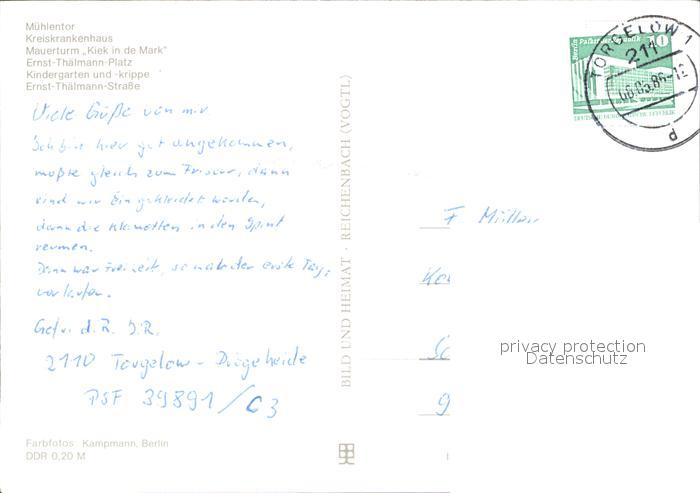 Mühlentor
Kreiskrankenhaus
Mauerturm „Kiek in de Mark"
Ernst-Thälmann-Platz
Kindergarten und -krippe
Ernst-Thälmann-Straße
Viele Grüße von mir
Ich bin hier gut angekommen,
mußte gleich zum Friseur, dann
sind wir Eingekleidet worden,
dann die Klamotten in den Spint
reumen.
Dann war Freizeit, so  der erste Tag,
verlaufen.
Gefr. d. R.
2110 Torgelow - Drögeheide
PSF 39891/C3
Farbfotos: Kampmann, Berlin
DDR 0,20 M
BILD UND HEIMAT · REICHENBACH (VOGTL)
TORGELOW 1
211
d
10
F Müller
9
privacy protection
Datenschutz